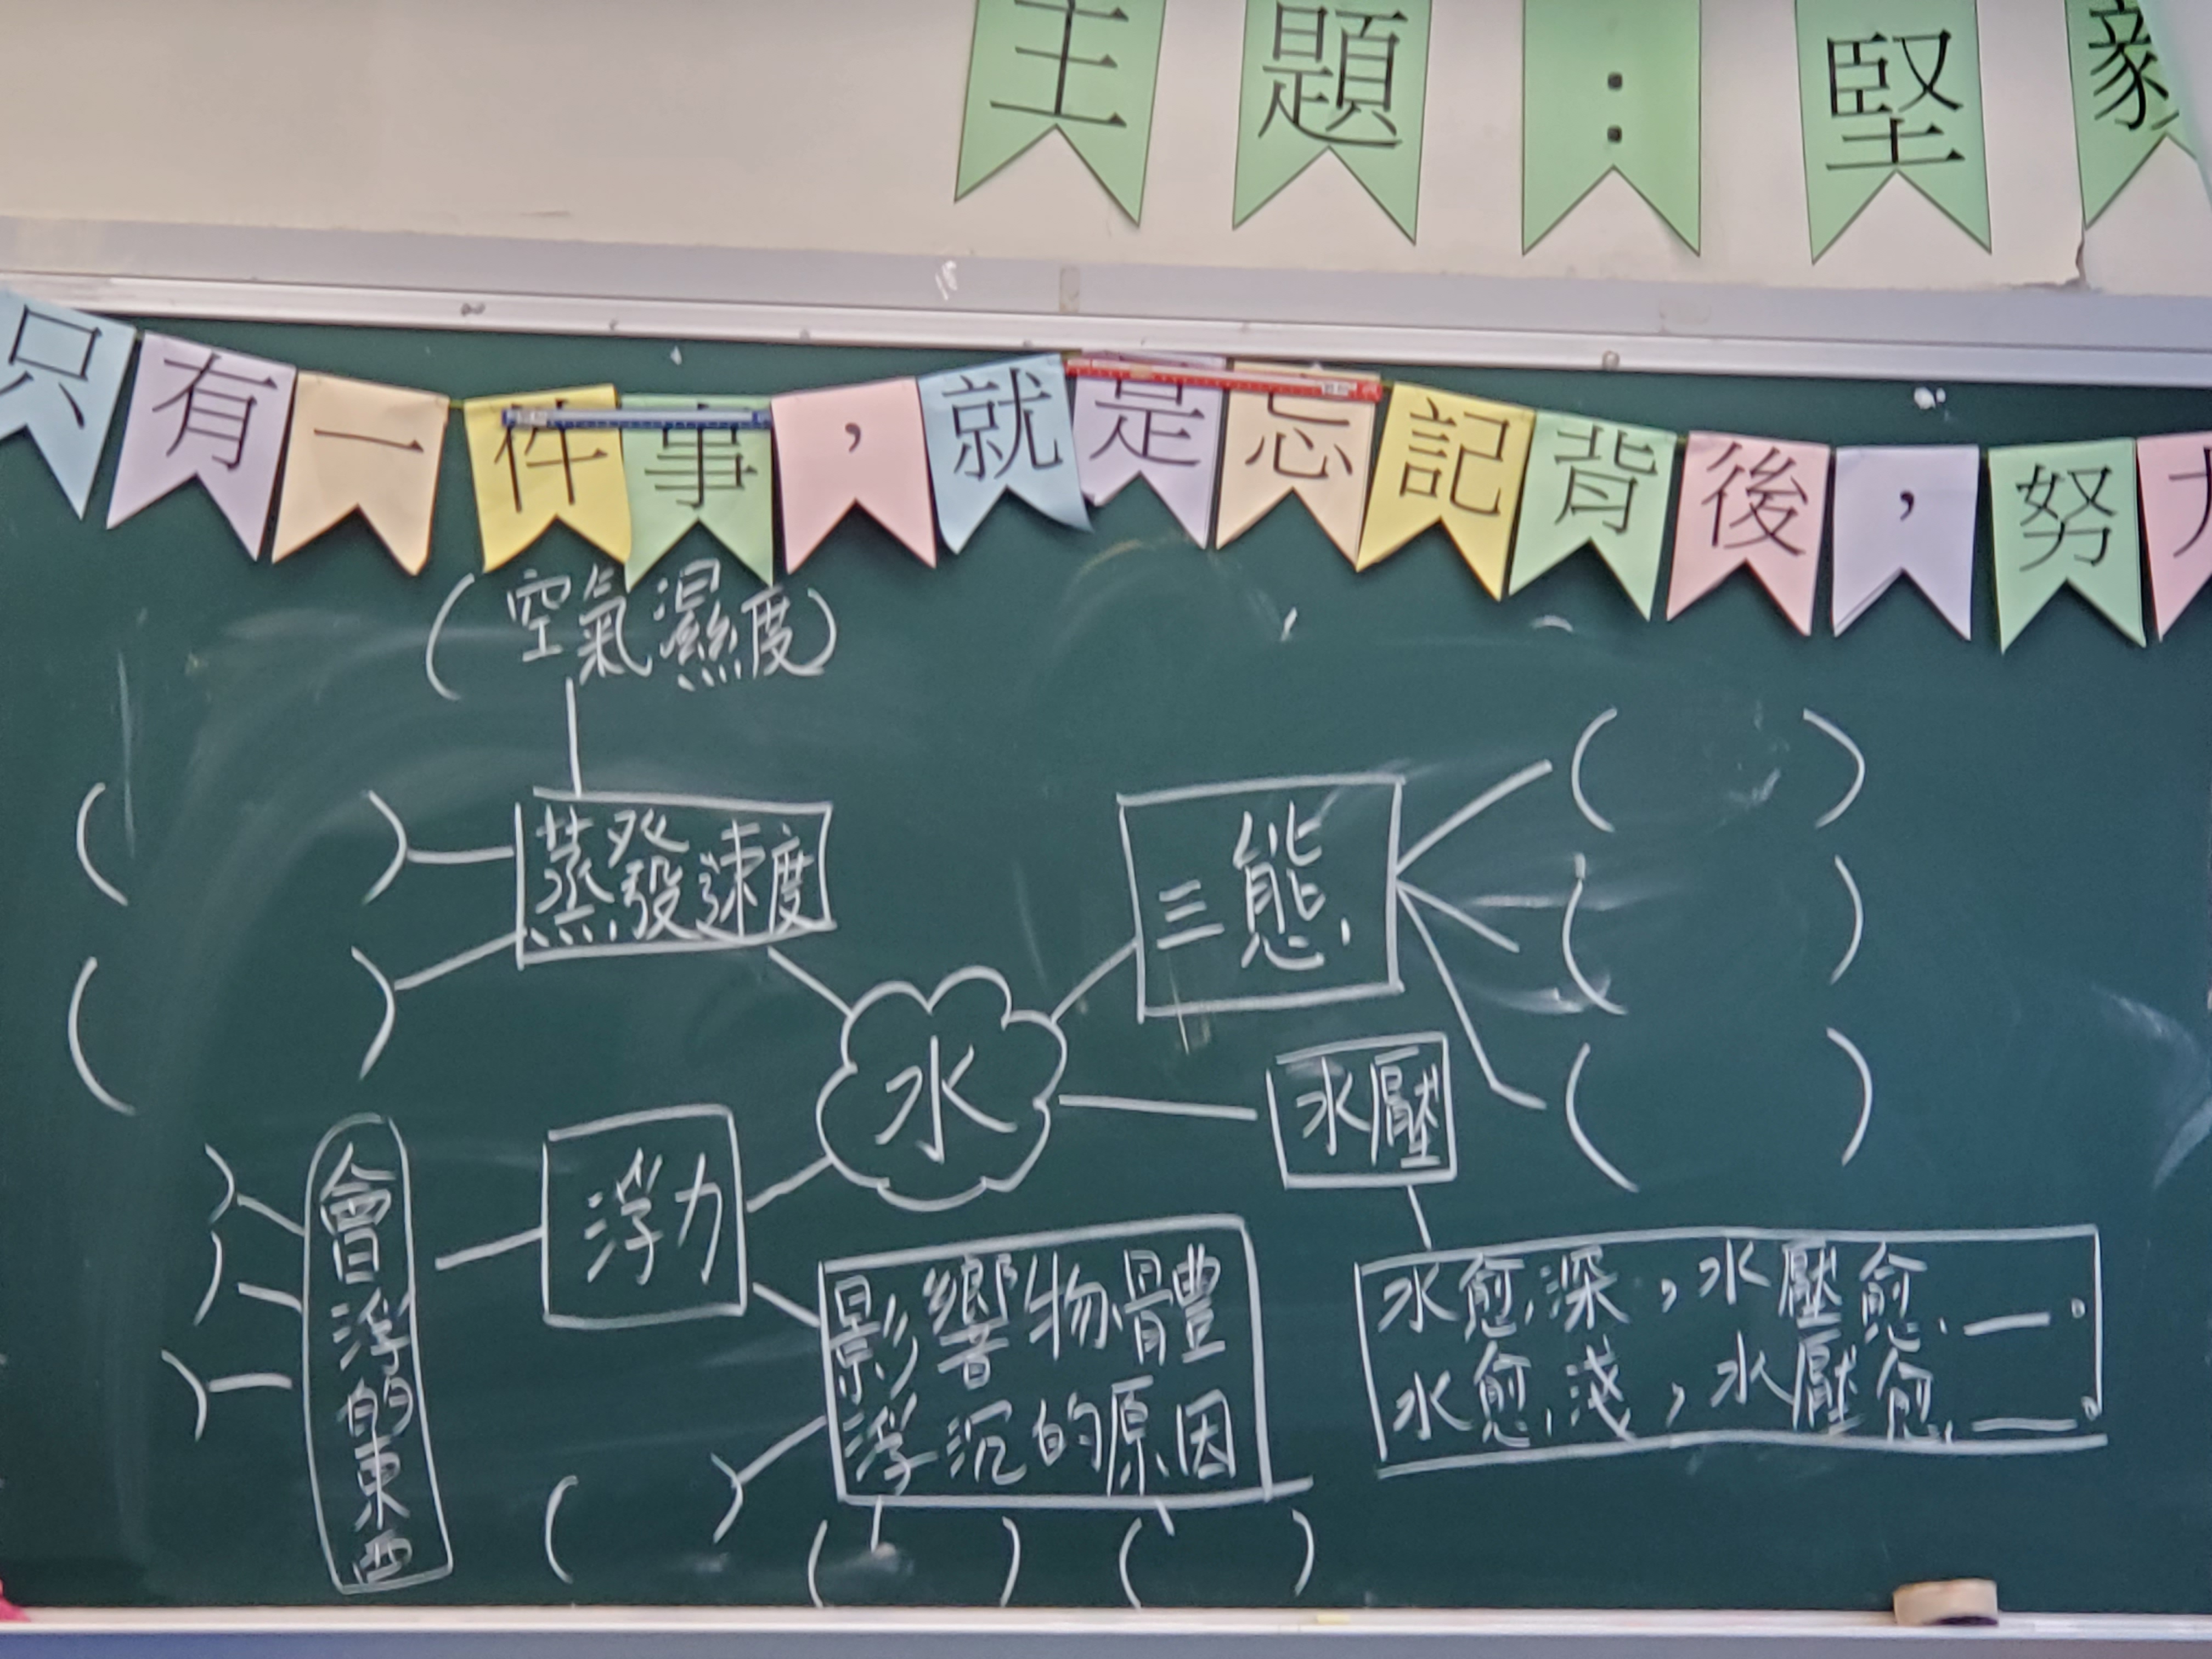 主題：堅毅
只有一件事，就是忘記背後，努力
(空氣濕度)
( )
蒸發速度
( )
三態
( )
( )
( )
水
水壓
水愈深，水壓愈__。
水愈淺，水壓愈__。
浮力
會浮的東西
)
)
)
影響物體
浮沉的原因
( )
( )
( )